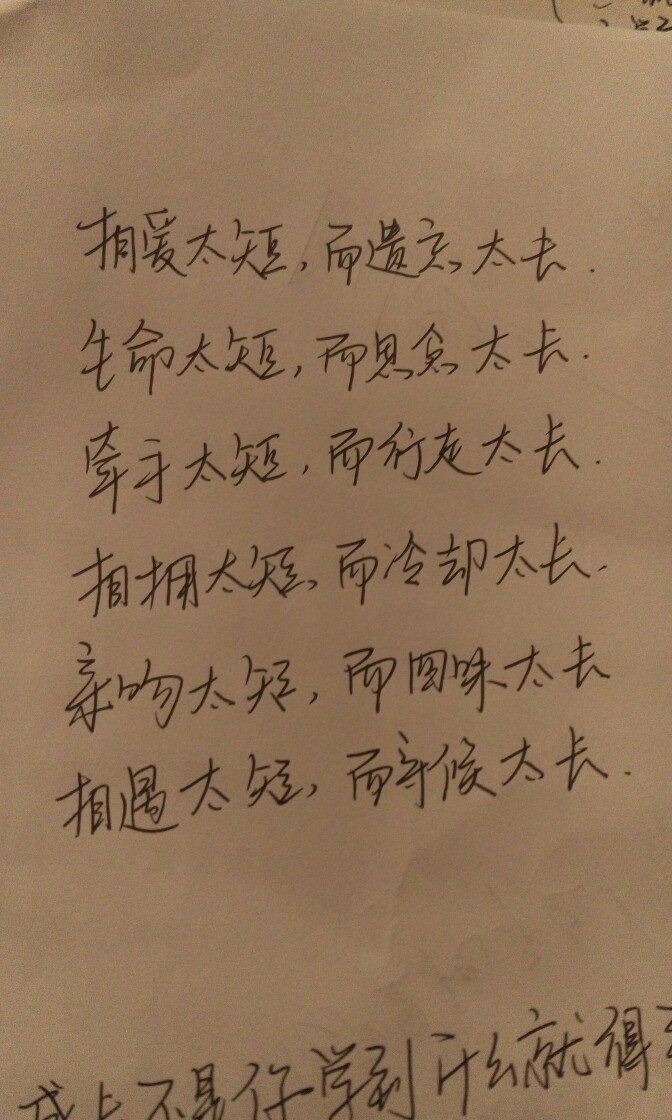 相爱太短，而遗忘太长．
生命太短，而思念太长．
牵手太短，而行走太长．
相拥太短，而冷却太长．
亲吻太短，而回味太长
相遇太短，而守候太长．
成长不是你学到什么就得